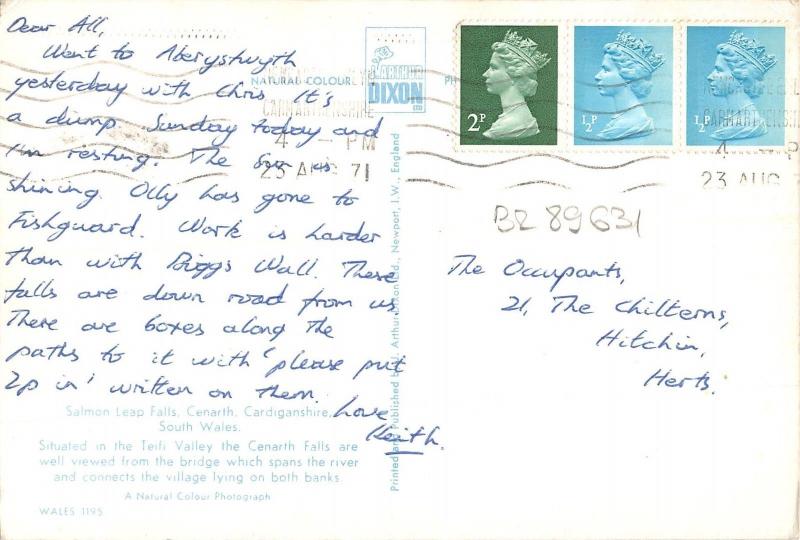 Dear All,
Went to Aberystwyth
yesterday with Chris It's
a dump. Sunday today and
I'm resting. The sun is
shining. Olly has gone to
Fishguard. Work is harder
than with Briggs Wall. These
falls are down road from us
There are boxes along the
paths to it with 'please put
2p in' written on them.
Love
Keith.
Salmon Leap Falls, Cenarth, Cardiganshire,
South Wales.
Situated in the Teifi Valley the Cenarth Falls are
well viewed from the bridge which spans the river
and connects the village lying on both banks.
A Natural Colour Photograph
WALES 1195
NATURAL COLOUR
PH
J. ARTHUR
DIXON
LTD
CARMARTHENSHIRE
4 - PM
23 AUG 71
Printed and Published by J. Arthur Dixon Ltd., Newport, I.W., England
2P
½P
½P
CARMARTHENSHI
4 - P
23 AUG
BR 89631
The Occupants,
21, The Chilterns,
Hitchin,
Herts.